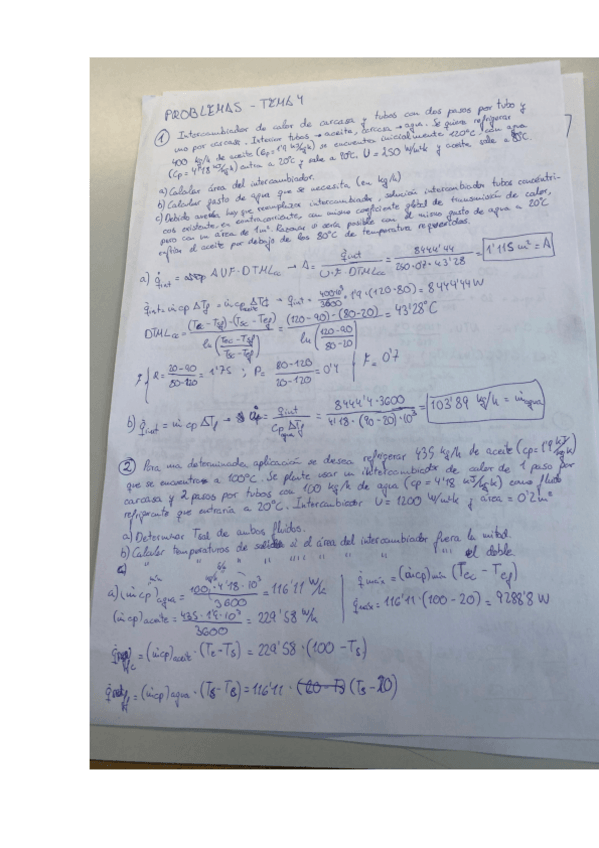 PROBLEMAS - TEMA 4
① Intercambiador de calor de carcasa y tubos con dos pasos por tubo y
uno por carcasa. Interior tubos → aceite, carcasa → agua. Se quiere refrigerar
400 kg/h de aceite (Cp=1'9 kJ/kgk) se encuentra inicialmente 120°C, con agua
(Cp=4'18 kJ/kgk) entra a 20°C y sale a 90°C. U=250 W/m²k y aceite sale a 80°C.
a) Calcular área del intercambiador.
b) Calcular gasto de agua que se necesita (en kg/h)
c) Debido hay que reemplazar intercambiador, solución intercambiador tubos concéntri-
cos existente, en contracorriente, con mismo coeficiente global de transmisión de calor,
pero con un área de 1m². Razonar si sería posible con el mismo gasto de agua a 20°C
enfriar el aceite por debajo de los 80°C de temperatura requeridos.
a) q̇int = A·U·F·DTMLcc → A = q̇int / U·F·DTMLcc = 8444'44 / 250·0'7·43'28 = 1'115 m² = A
q̇int = ṁ cp ΔTf = ṁ cp ΔTc aceite → q̇int = 400·10³/3600 · 1'9 · (120-80) = 8444'44 W
DTMLcc = (Tec - Tsf) - (Tsc - Tef) / ln(Tec - Tsf / Tsc - Tef) = (120-90) - (80-20) / ln(120-90 / 80-20) = 43'28°C
F { R = 20-90 / 80-120 = 1'75 ; P = 80-120 / 20-120 = 0'4 } F = 0'7
b) q̇int = ṁ cp ΔTf → = q̇int / cp ΔTf agua = 8444'4·3600 / 4'18·(90-20)·10³ = 103'89 kg/h = ṁagua
② Para una determinada aplicación se desea refrigerar 435 kg/h de aceite (cp=1'9 kJ/kgk)
que se encuentra a 100°C. Se plantea usar un intercambiador de calor de 1 paso por
carcasa y 2 pasos por tubos con 100 kg/h de agua (cp=4'18 kJ/kgk) como fluido
refrigerante que entraría a 20°C. Intercambiador U=1200 W/m²k y área = 0'2 m²
a) Determinar Tsal de ambos fluidos.
b) Calcular temperaturas de salida si el área del intercambiador fuera la mitad.
c) " " " " " " " " " el doble.
a) (ṁcp)agua = 100·4'18·10³ / 3600 = 116'11 W/k
q̇max = (ṁcp)min (Tec - Tef)
(ṁcp)aceite = 435·1'9·10³ / 3600 = 229'58 W/k
q̇max = 116'11·(100-20) = 9288'8 W
= (ṁcp)aceite·(Te-Ts) = 229'58·(100-Ts)
= (ṁcp)agua·(Ts-Te) = 116'11·(Ts-20)